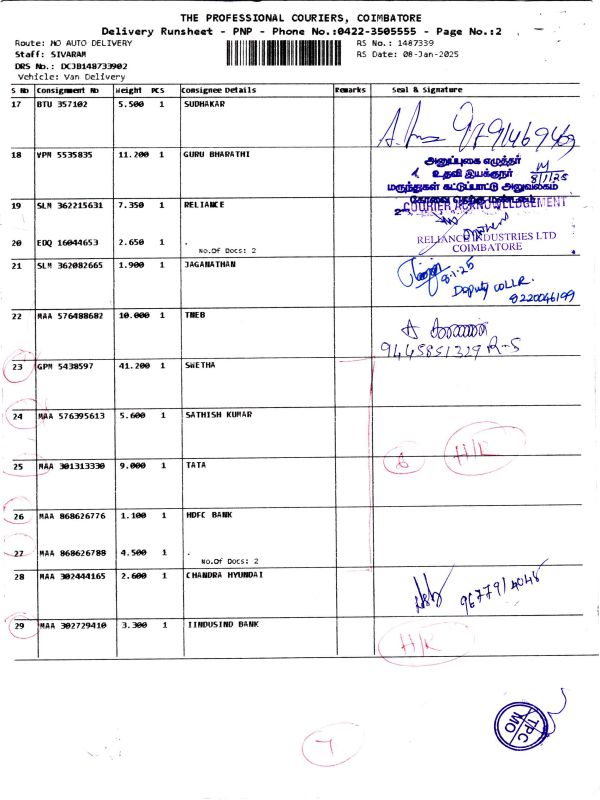 THE PROFESSIONAL COURIERS, COIMBATORE
Delivery Runsheet - PNP - Phone No.:0422-3505555 - Page No.:2
Route: NO AUTO DELIVERY RS No.: 1487339
Staff: SIVARAM RS Date: 08-Jan-2025
DRS No.: DCJB148733902
Vehicle: Van Delivery
S No Consignment No Weight PCS Consignee Details Remarks Seal & Signature
17 BTU 357102 5.500 1 SUDHAKAR
18 VPM 5535835 11.200 1 GURU BHARATHI
அனுப்புகை எழுத்தர்
உதவி இயக்குநர்
8/1/25
மருந்துகள் கட்டுப்பாட்டு அலுவலகம்
19 SLM 362215631 7.350 1 RELIANCE
COURIER ACKNOWLEDGEMENT
20 EDQ 16044653 2.650 1 .
No.Of Docs: 2
RELIANCE INDUSTRIES LTD
COIMBATORE
21 SLM 362082665 1.900 1 JAGANATHAN
8-1-25
Deputy COLLR.
8220046199
22 MAA 576488682 10.000 1 TNEB
9445851329 R-S
23 GPM 5438597 41.200 1 SWETHA
24 MAA 576395613 5.600 1 SATHISH KUMAR
H/R
25 MAA 301313330 9.000 1 TATA
26 MAA 868626776 1.100 1 HDFC BANK
27 MAA 868626788 4.500 1 .
No.Of Docs: 2
28 MAA 302444165 2.600 1 CHANDRA HYUNDAI
29 MAA 302729410 3.300 1 IINDUSIND BANK
H/R
7
TPC
MO